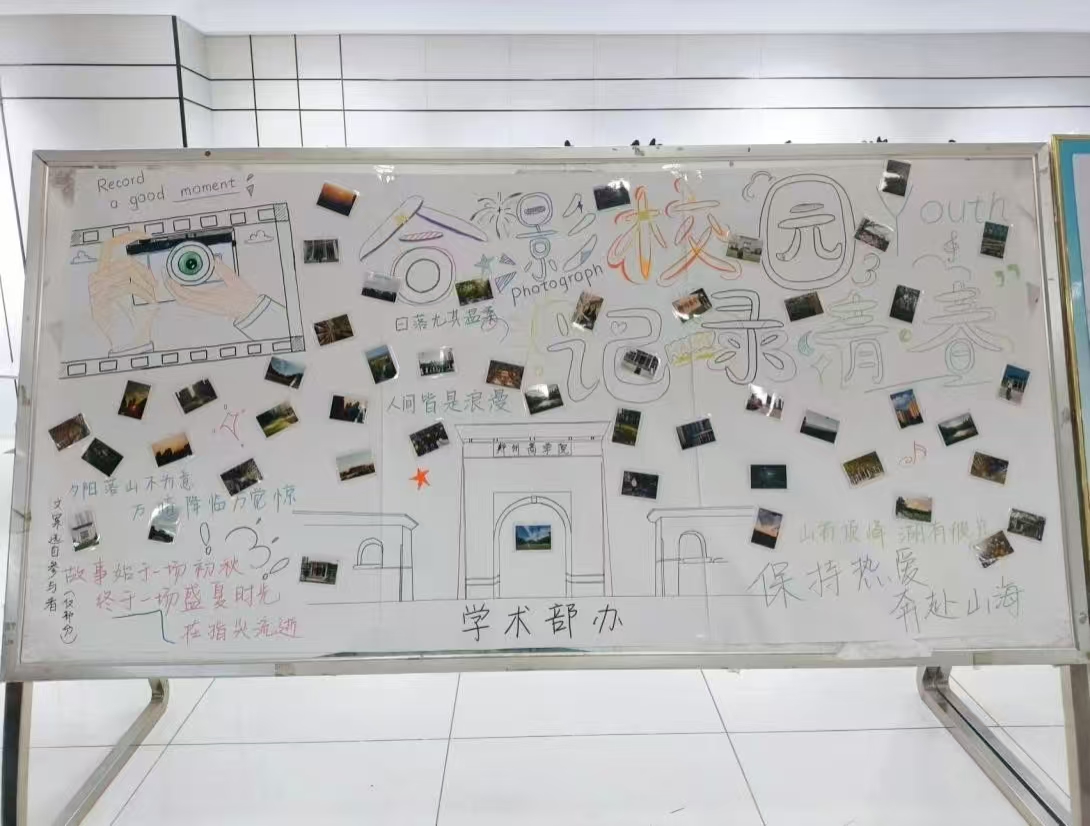 Record
a good moment
合影校园
Youth
photograph
记录青春
日落尤其温柔
人间皆是浪漫
郑州商学院
夕阳落山不为意
万
降临方觉惊
文案选自参与者
故事始于一场初秋
终于一场盛夏时光
在指尖流逝
山有顶峰 湖有彼岸
保持热爱
奔赴山海
学术部办